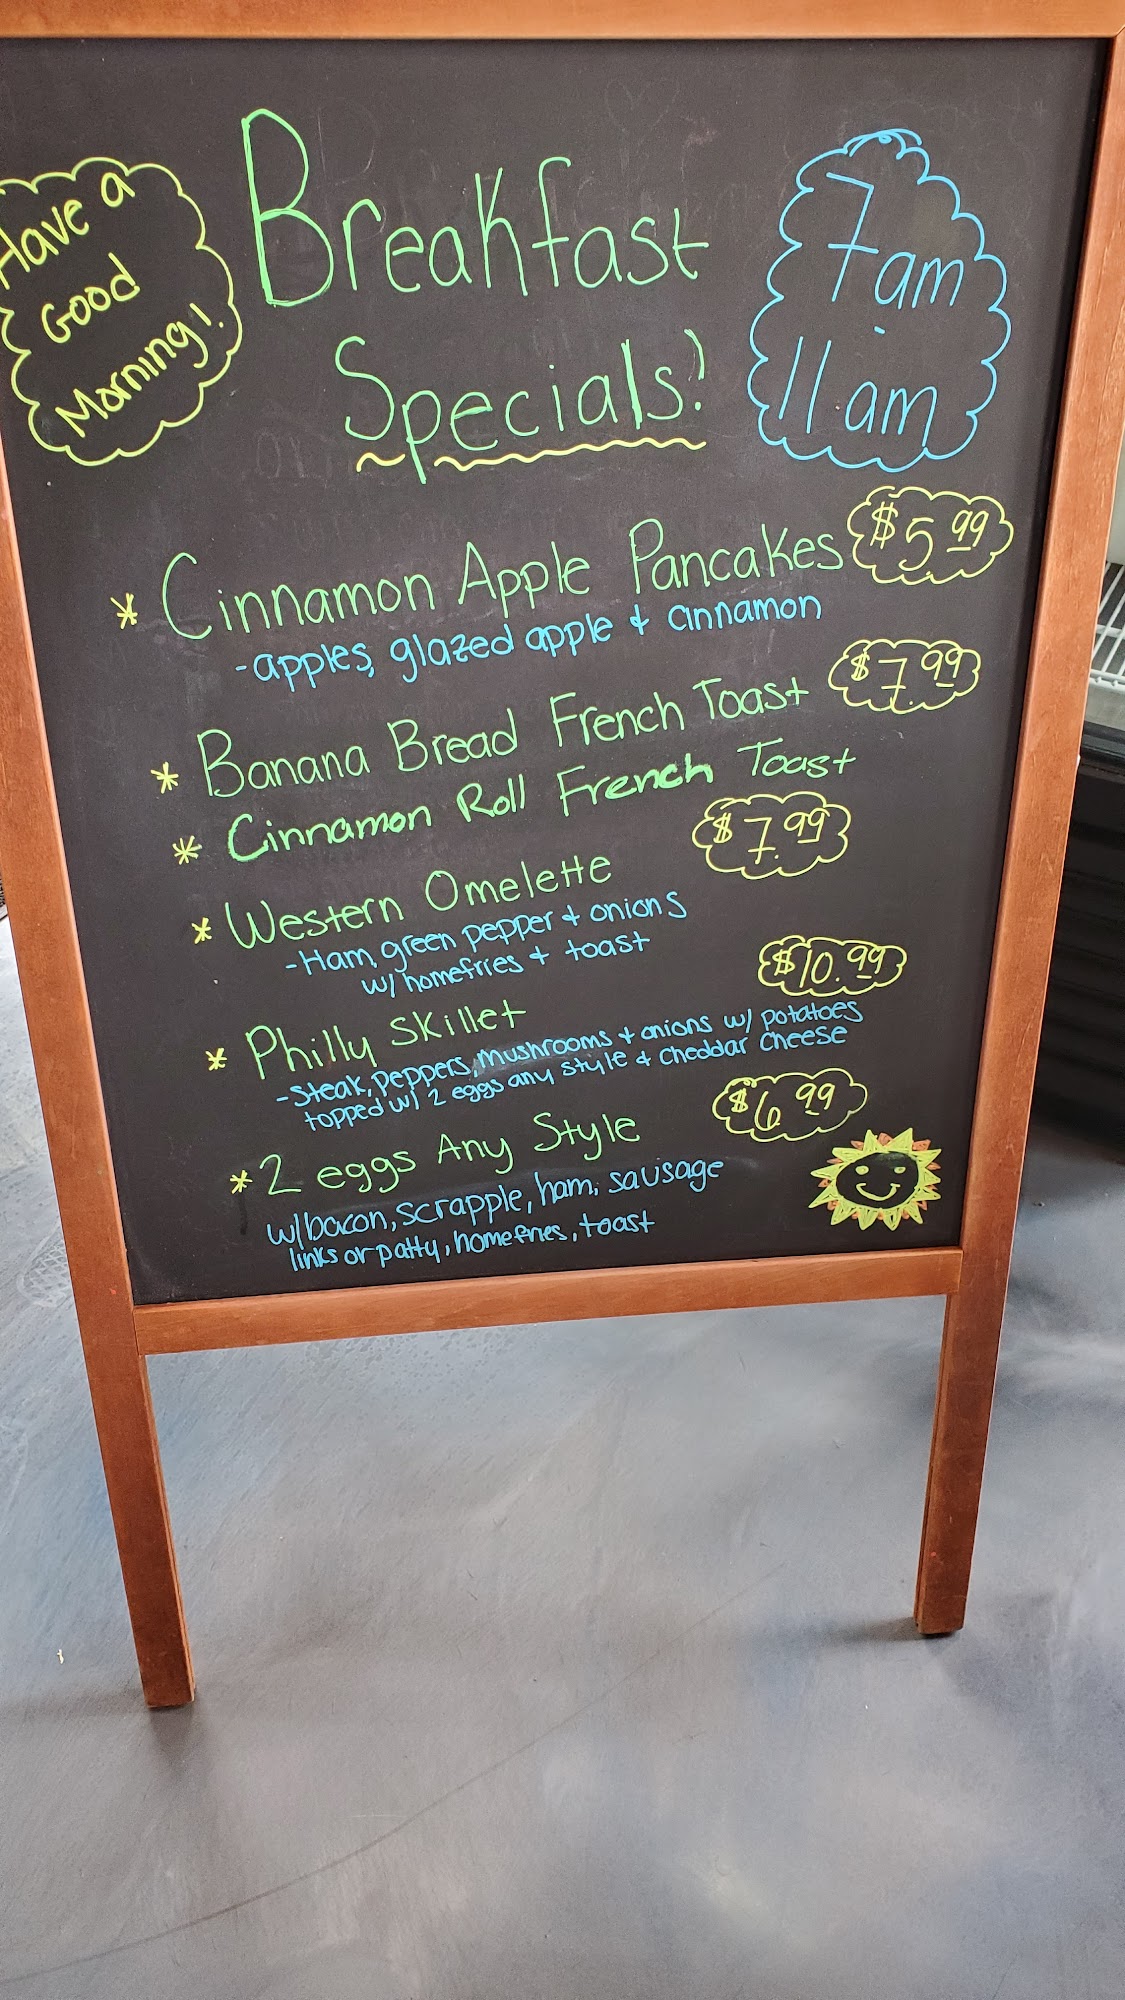 Have a
Good
Morning!
Breakfast
Specials!
7am
-
11am
* Cinnamon Apple Pancakes $5.99
-apples, glazed apple & cinnamon
* Banana Bread French Toast $7.99
* Cinnamon Roll French Toast
* Western Omelette $7.99
-Ham, green pepper & onions
w/ homefries & toast
* Philly Skillet $10.99
-Steak, peppers, mushrooms & onions w/ potatoes
topped w/ 2 eggs any style & cheddar cheese
* 2 eggs Any Style $6.99
w/bacon, scrapple, ham, sausage
links or patty, homefries, toast